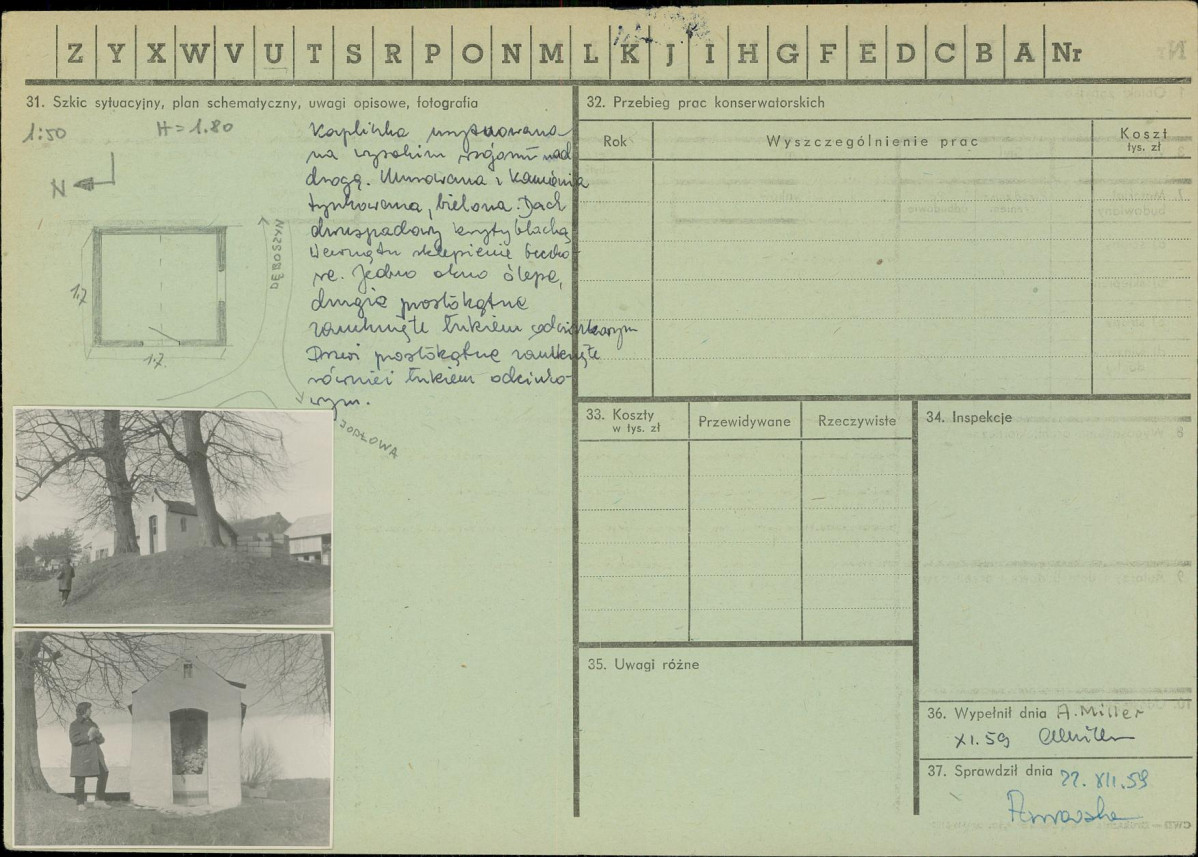 Z Y X W V U T S R P O N M L K J I H G F E D C B A Nr
31. Szkic sytuacyjny, plan schematyczny, uwagi opisowe, fotografia
1:50 H = 1.80
N
1.7
1.7
DĘBOSZYN
JODŁOWA
Kapliczka usytuowana
na wysokim wzgórzu nad
drogą. Murowana z kamienia
tynkowana, bielona. Dach
dwuspadowy kryty blachą
Wewnątrz sklepienie beczko-
we. Jedno okno ślepe,
drugie prostokątne
zamknięte łukiem odcinkowym
Drzwi prostokątne zamknięte
również łukiem odcinko-
wym.
32. Przebieg prac konserwatorskich
Rok Wyszczególnienie prac Koszt
tys. zł
33. Koszty
w tys. zł
Przewidywane Rzeczywiste
34. Inspekcje
35. Uwagi różne
36. Wypełnił dnia A. Miller
XI.59
37. Sprawdził dnia 22. XII.59